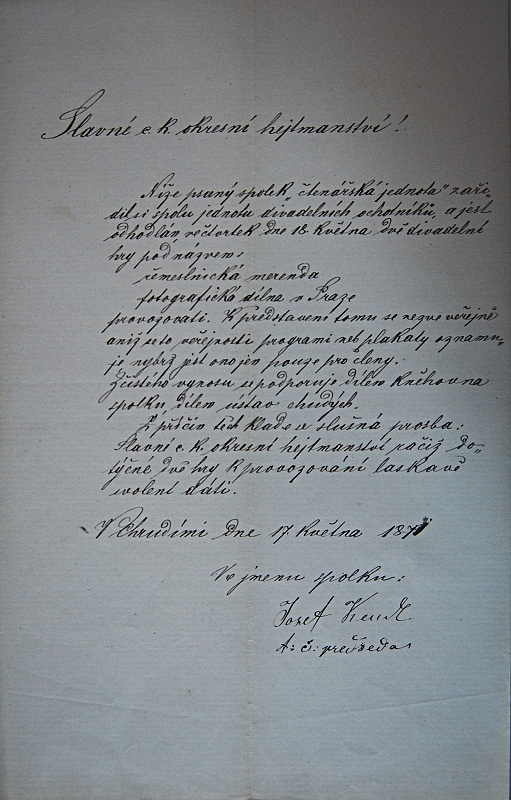 Slavné c. k. okresní hejtmanství!
Níže psaný spolek „čtenářská jednota" zaří-
dil si spolu jednotu divadelních ochotníků, a jest
odhodlán večtvrtek dne 18. května dvě divadelní
hry pod názvem:
řemeslnická merenda
fotografická dílna v Praze
provozovati. K představení tomu se nezve veřejně
aniž se to veřejnosti programi neb plakaty oznamu-
je nybrž jest ono jen pouze pro členy.
Z čistého vynosu se podporuje dílem kněhovna
spolku dílem ústav chudých.
Z příčin těch klade se slušná prosba:
Slavné c. k. okresní hejtmanství račiž do-
týčné dvě hry k provozování laskavě
svolení dáti.
V Chrudimi dne 17. května 187
Ve jmenu spolku:
Josef
t: č: předseda